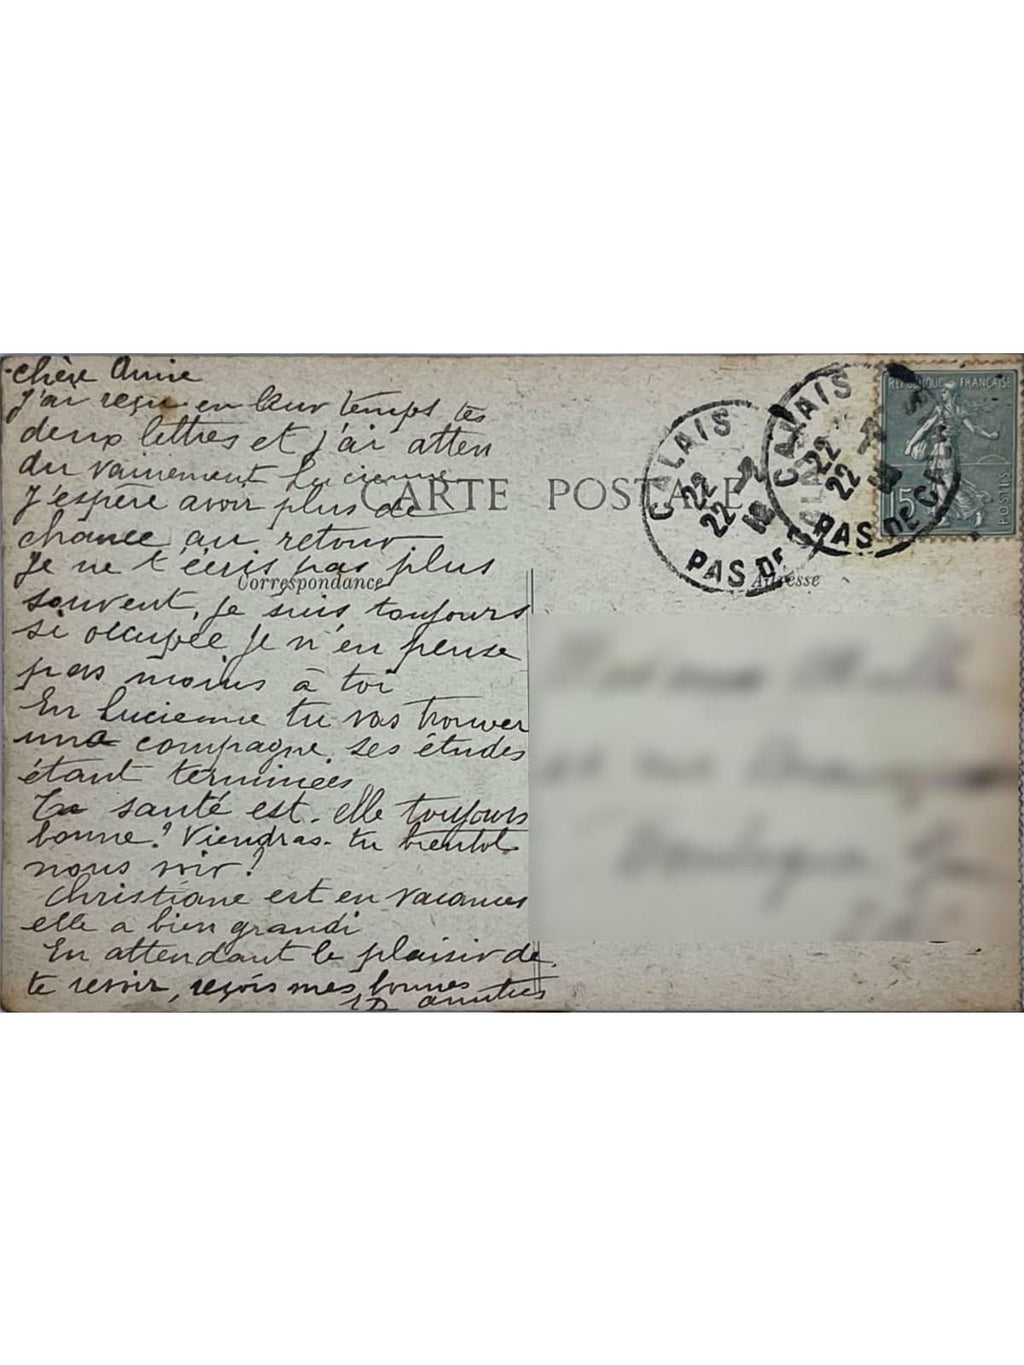 chère Amie
J'ai reçu en leur temps tes
deux lettres et j'ai atten
du vainement Lucienne
J'espère avoir plus de
chance au retour
Je ne t'écris pas plus
souvent, je suis toujours
si occupée je n'en pense
pas moins à toi
En Lucienne tu vas trouver
une compagne, ses études
étant terminées
Ta santé est-elle toujours
bonne? Viendras-tu bientôt
nous voir?
Christiane est en vacances
elle a bien grandi
En attendant le plaisir de
te revoir, reçois mes bonnes
amitiés
CARTE POSTALE
Correspondance
Adresse
CALAIS
22 -2
22
PAS DE CALAIS
CALAIS
22 -2
22
PAS DE CALAIS
REPUBLIQUE FRANÇAISE
15c
POSTES